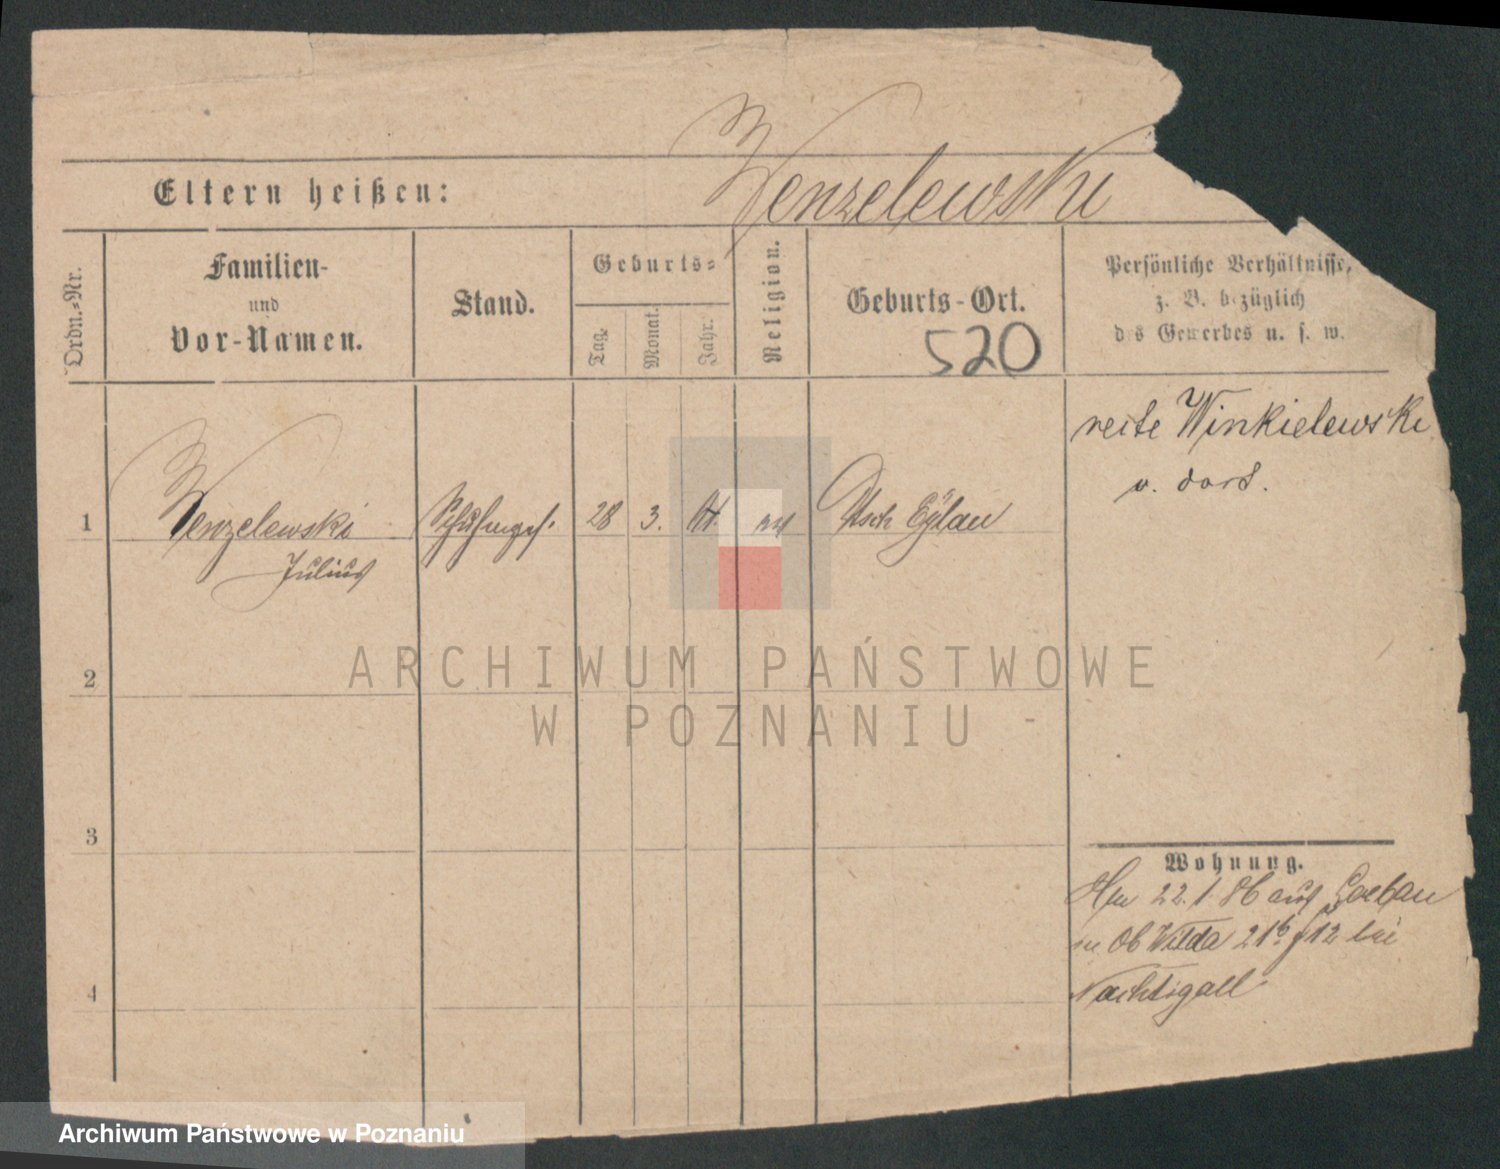 Wenzelewski
Eltern heißen:
Ordn.-Nr.
Familien-
und
Vor-Namen.
Stand.
Geburts-
Tag.
Monat.
Jahr.
Religion.
Geburts-Ort.
520
Persönliche Verhältnisse,
z. B. bezüglich
des Gewerbes u. s. w.
reite Winkielewski
v. dort.
1
Wenzelewski
Julius
28
3.
Dtsch Eylau
ARCHIWUM PAŃSTWOWE
W POZNANIU
2
3
4
Wohnung.
22.1.86 aus Loebau
Ob Wilda 21b bei
Nachtigall
Archiwum Państwowe w Poznaniu